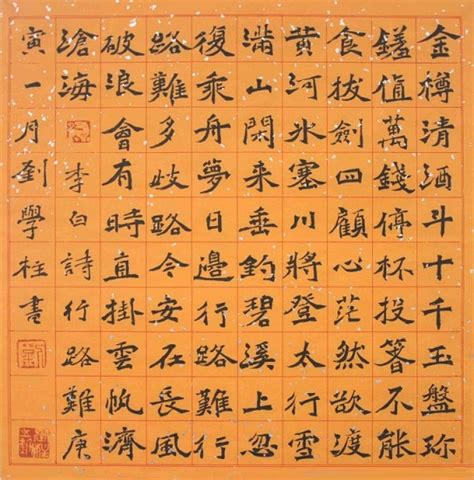 金樽清酒斗十千玉盤珎
饈值萬錢停杯投箸不能
食拔劍四顧心茫然欲渡
黄河氷塞川將登太行雪
滿山閑来垂釣碧溪上忽
復乘舟夢日邊行路難行
路難多歧路今安在長風
破浪會有時直掛雲帆濟
滄海李白詩行路難庚
寅一月劉學柱書